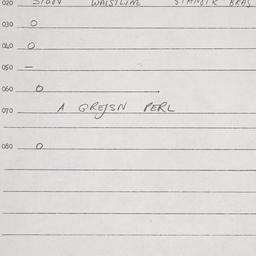 020 STOOV WAISTLINE STANDIK BRAS
030 O
040 O
050 —
060 O
070 A GREJSN PERL
080 O